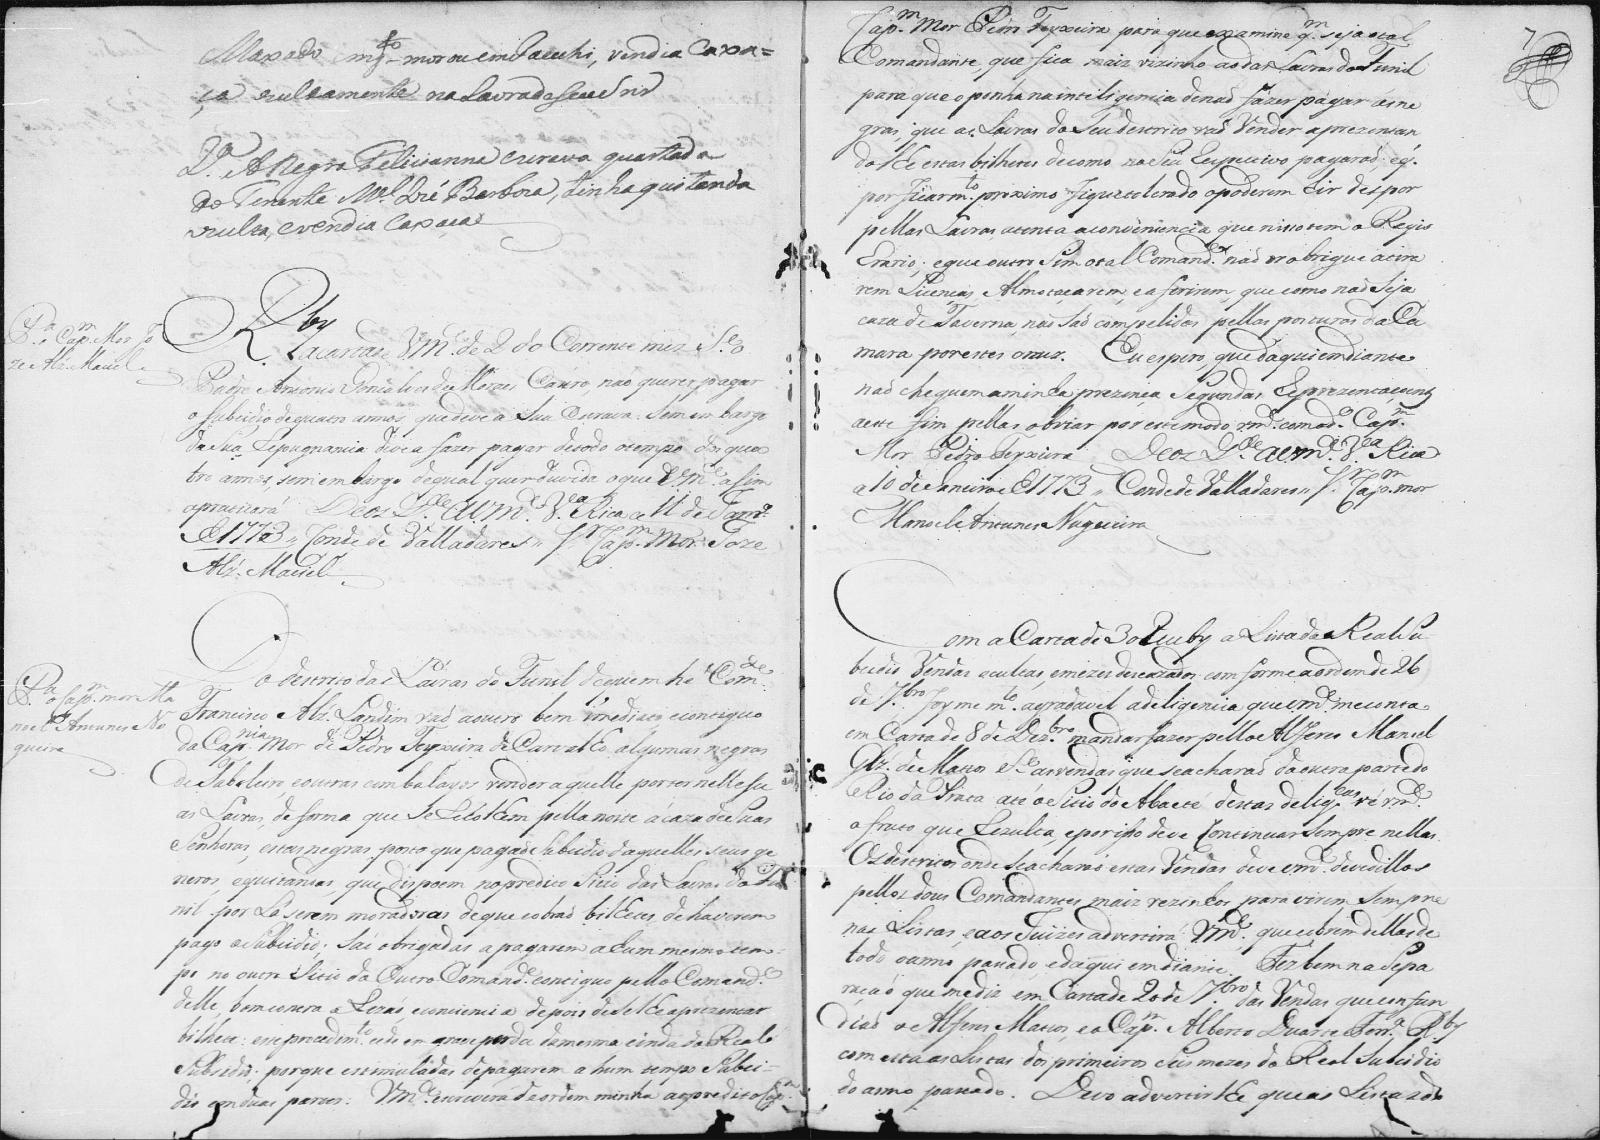 Maxado mg.to morou em Pacuhi, vendia Caxa=
ça ocultamente na Lavra de seu Snr
D.a A Negra Felicianna escrava quartada
do Tenente M.el Jozé Barboza, tinha quitanda
oculta, e vendia Caxaça
P.a o Cap.m Mor Jo
ze Alz. Maciel
R.by
a carta de Vm.ce de 2 do Corrente mez. Se o
Padre Antonio Gonçalves de Moraes Castro, não quer pagar
o subsidio de quatro annos, que deve a Sua Escrava: sem embargo
da sua repugnancia deve a fazer pagar de todo o tempo dos qua
tro annos, sem embargo de qual quer duvida, o que Vm.ce asim
aprecitará Deos G.de a Vm.ce V.a Rica a 11 de Janr.o
de 1773 // Conde de Valladares // S.r Cap.m Mor Joze
Alz. Maciel
P.a o Cap.m mor Ma
noel Antunes No
gueira
Do destrito das Lavras do Funil de quem he Com.de
Francisco Alz. Landim vaõ a outro bem imediato e contiguo
da Cap.nia Mor de Pedro Teyxeira de Carvalho, algumas negras
de Taboleiro, e outras com balayos vender aquelle portos nelle su
as Lavras, de forma que Se recolhem pella noite a caza de Suas
Senhoras, estas negras, posto que pagaõ de subcidio daquelles seus ge
neros, e quitandas, que dispoem no predito Sitio das Lavras do Fu
nil por Lá serem moradoras de que cobraõ bilhetes, de haverem
pago o Subsidio; Saõ obrigadas a pagarem a hum mesmo tem
po no outro Sitio do Outro Comand.e contiguo pello Comand.e
delle, bem contra a Rezaõ, e conciencia depois de se lhe aprezentar
bilhete: este procedim.to cede em grave perda da mesma renda do Real
Subsidio; porque estimuladas de pagarem a hum tempo Subci-
dio em duas partes: Vm.ce escreverá de ordem minha ao predito Cap.m
7
Cap.m Mor Pedro Teyxeira para que examine q.m seja o tal
Comandante, que fica maiz vizinho ao das Lavras do Funil
para que o ponha na inteligencia de naõ fazer pagar ás ne
gras, que as Lavras do Seu destrito vaõ Vender aprezentan
dolhe estas bilhetes de como no Seu respectivo pagaraõ: e q.
por ficar m.to proximo fique tolerado o poderem hir dispor
pellas Lavras, atenta a conveniencia que nisso tem o Regio
Erario; e que outro Sim o tal Comand.e naõ os obrigue a tira
rem Licenças, Almotacarem, e aferirem, que como naõ Seja
caza de Taverna, naõ saõ compelidos pellas posturas da Ca
mara por estes onus. Eu espero, que daqui em diante
naõ cheguem a minha prezença Segundas reprezentaçoens
a este fim pellas obviar por este modo vm.ce com o d.o Cap.m
Mor Pedro Teyxeira Deos G.de a Vm.ce V.a Rica
a 10 de Janeiro de 1773 // Conde de Valladares // S.r Cap.m mor
Manoel Antunes Nogueira
Com a Carta de 30 Recby a Lista do Real Su
bcidio Vendas ocultas, e mezes descazados, com forme a ordem de 26
de 7.bro Foyme m.to agradavel a deligencia que vm.ce me conta
em Carta de 8 de Dez.bro mandar fazer pello Alferes Manoel
Glz. de Mattos Sobre as vendas que se acharaõ da outra parte do
Rio da Prata até o Sitio do Abaeté destas delig.cas vê vm.ce
o fruto que Rezulta, e por isso deve Continuar Sempre nellas
Os destritos onde se acharaõ estas Vendas deve vm.ce devedillos
pellos dous Comandantes maiz vezinhos para virem Sempre
nas Listas, e aos Juizes advertirá Vm.ce que cobrem dellas de
todo o anno passado, e daqui em diante. Fez bem na Sepa
raçaõ que me diz em Carta de 20 de 7.bro das Vendas que confun
diaõ o Alferes Mattos, e o Cap.m Alberto Duarte Ferr.a R.by
com esta as Listas dos primeiros Seis mezes do Real Subsidio
do anno passado. Devo advertirlhe que as Listas do